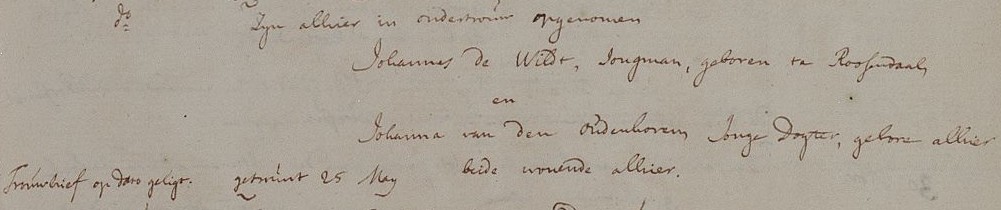 do Zyn alhier in ondertrouw opgenomen
Johannes de Wildt, Jongman, geboren te Roosendaal,
en
Johanna van den Oudenhoven Jonge Dogter, gebore alhier
Trouwbrief op dato geligt. getrout 25 May beide wonende alhier.